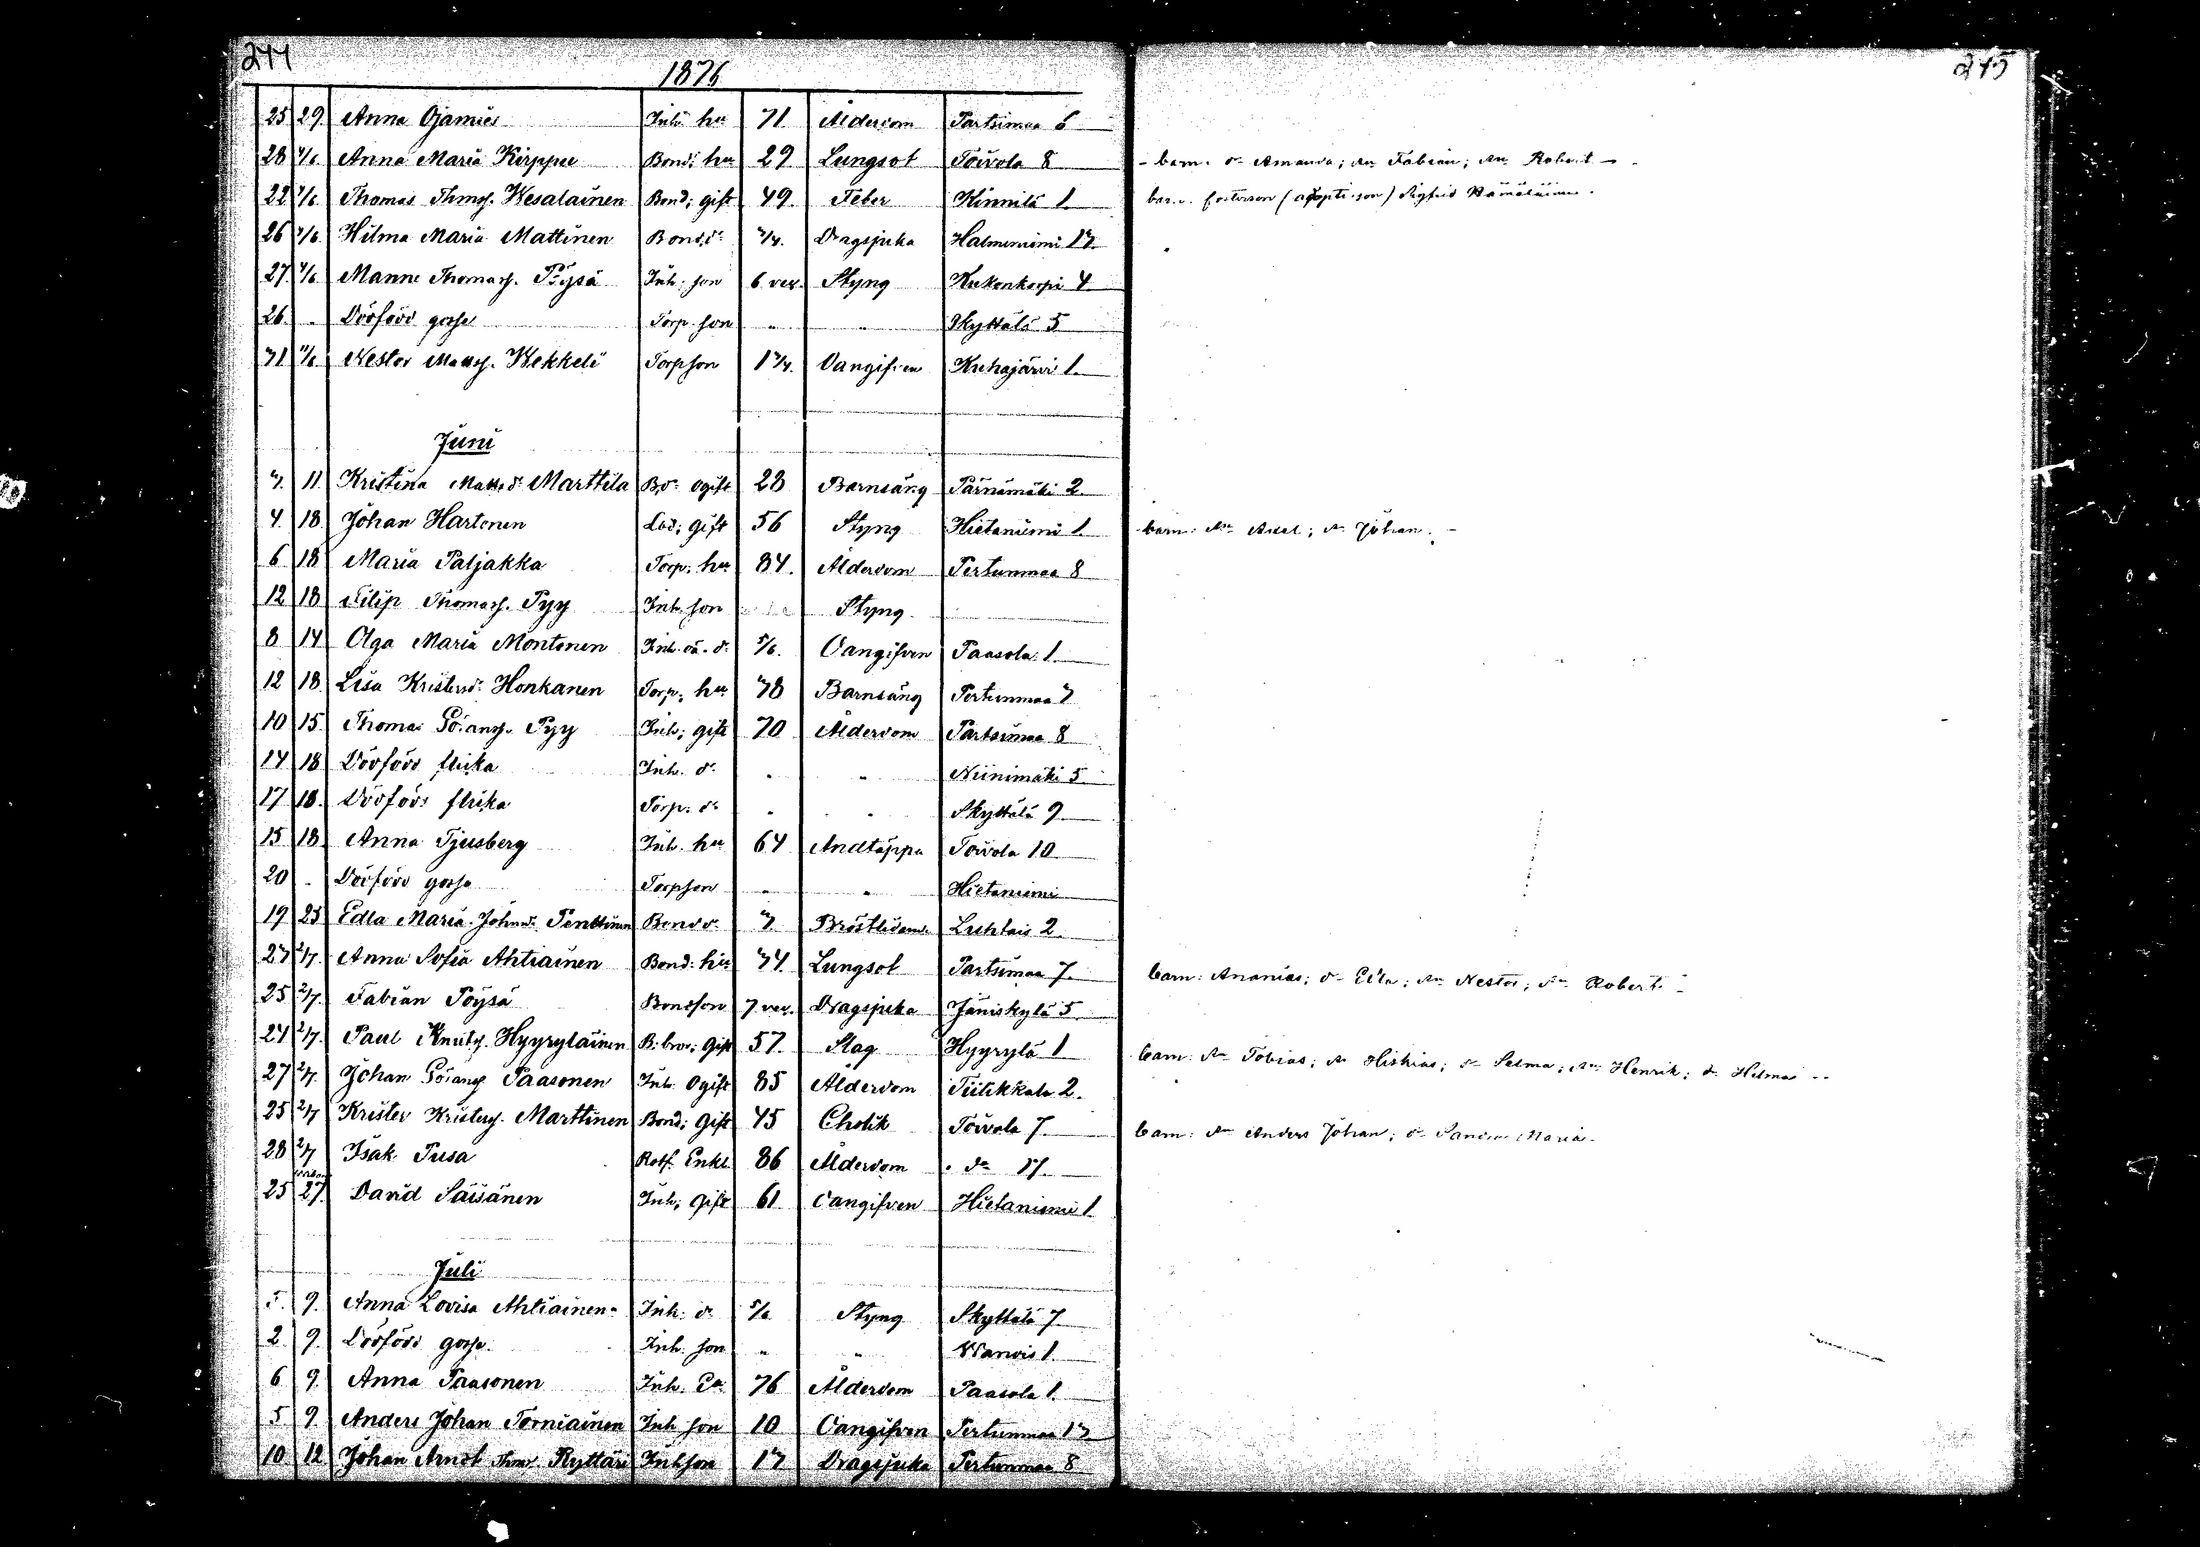 244
1876
25 29 Anna Ojamies Inh: hu 71 Ålderdom Partsimaa 6
28 4/6 Anna Maria Kirppu Bond: hu 29 Lungsot Toivola 8 - barn: dr Amanda; sn Fabian; sn Robert -
22 4/6 Thomas Thms. Wesalainen Bond; gift 49. Feber Kinnilä 1. barn. fosterson (adoptivson) Sigfrid Hämäläinen.
26 4/6 Hilma Maria Mattinen Bond. dr Dragsjuka Halmeniemi 17.
27. 4/6 Manne Thomass. Pöysä Inh: son 6 vec. Styng Kukonkorpi 4
26. Dödfödd gosse Torp. son " " Skyttälä 5
11/6 Nestor Matts. Kekkeli Torpson Oangifven Kuhajärvi 1.
Juni
7. 11. Kristina Matts. dr Marttila B. dr ogift 28 Barnsäng Pärnämäki 2.
4. 18. Johan Hartonen Lod; gift 56 Styng Hietaniemi 1. barn: sn Axel; sn Johan. -
6 18 Maria Paljakka Torp: hu 84. Ålderdom Pertunmaa 8
12 18 Filip Thomass. Pyy Inh. son Styng.
8 14 Olga Maria Montonen Inh. oä. dr 5/6. Oangifven Paasola 1.
12 18. Lisa Kristersd: Honkanen Torp; hu 78 Barnsäng Pertunmaa 7
10 15. Thomas Görans. Pyy Inh; gift 70 Ålderdom Partsimaa 8
14 18 Dödfödd flicka Inh. dr. " " Niinimäki 5.
17 18. Dödfödd flicka Torp: dr " " Skyttälä 9
15 18. Anna Tjusberg Inh. hu 64 Andtäppa Toivola 10.
20 - Dödfödd gosse Torpson " " Hietaniemi
19 25 Edla Maria Johansd. Penttinen Bond dr. 7. Bröstlidand. Luhtais 2.
2/7. Anna Sofia Ahtiainen Bond: hu 74. Lungsot Partsimaa 7. barn: Ananias; dr Edla; sn Nestor; sn Robert. -
25 2/7. Fabian Pöysä Bondson 7 vec. Dragsjuka Jäniskylä 5.
24 2/7. Paul Knuts. Hyyryläinen B: bror; Gift 57. Slag Hyyrylä 1 barn: sn Tobias; sn Hiskias; dr Selma; sn Henrik; dr Helmi --
27 2/7. Johan Görans. Paasonen Inh. Ogift 85 Ålderdom Tiilikkala 2.
25 2/7 Krister Kristers. Marttinen Bond; Gift 45 Cholik Toivola 7. barn: sn Anders Johan; dr Maria.
28 2/7 Isak Pusa Rotf. Enkl. 86 Ålderdom do 17.
25 27. David Säisänen Inh; Gift 61 Oangifven Hietaniemi 1.
Juli
5. 9. Anna Lovisa Ahtiainen Inh: dr 5/6. Styng Skyttälä 7.
2. 9. Dödfödd gosse. Inh. son " " Warvis 1.
6 9. Anna Paasonen Inh: Ea. 76 Ålderdom Paasola 1.
5 9. Anders Johan Torniainen Inh son 10 Oangifven Pertunmaa 17.
10 12. Johan Arndt Thms. Ryttäri Inhson 17 Dragsjuka Pertunmaa 8
245